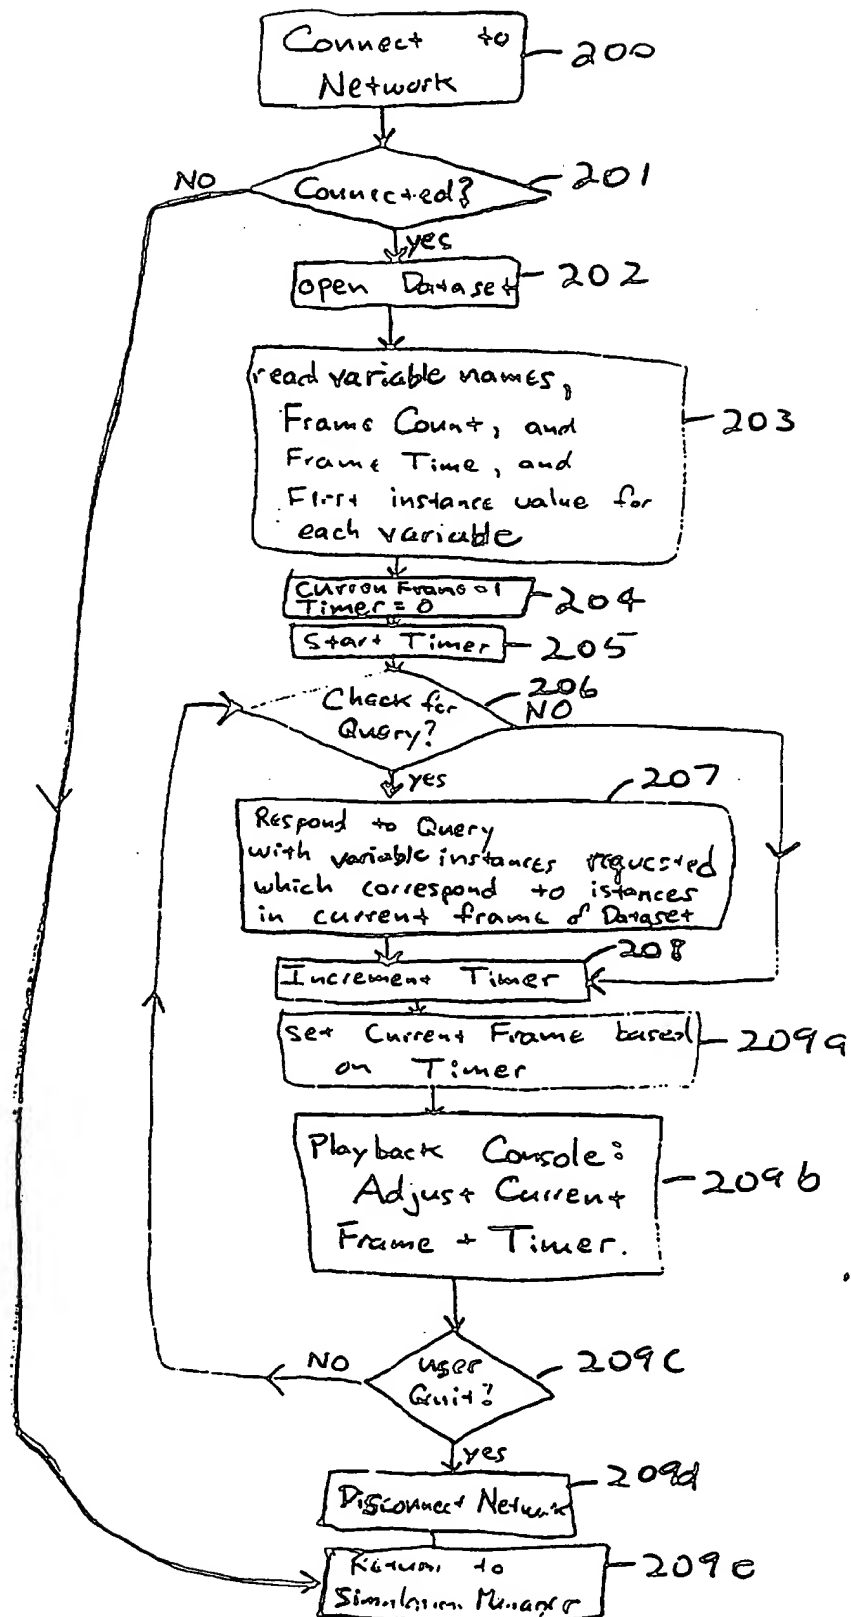 Connect to
Network
200
Connected?
201
NO
yes
open Dataset
202
read variable names,
Frame Count, and
Frame Time, and
First instance value for
each variable
203
Curren Frame = 1
Timer = 0
204
Start Timer
205
Check for
Query?
206
NO
yes
207
Respond to Query
with variable instances requested
which correspond to istances
in current frame of Dataset
208
Increment Timer
set Current Frame based
on Timer
209a
Playback Console:
Adjust Current
Frame + Timer.
209b
user
Quit?
209c
NO
yes
Disconnect Network
209d
Return to
Simulation Manager
209e